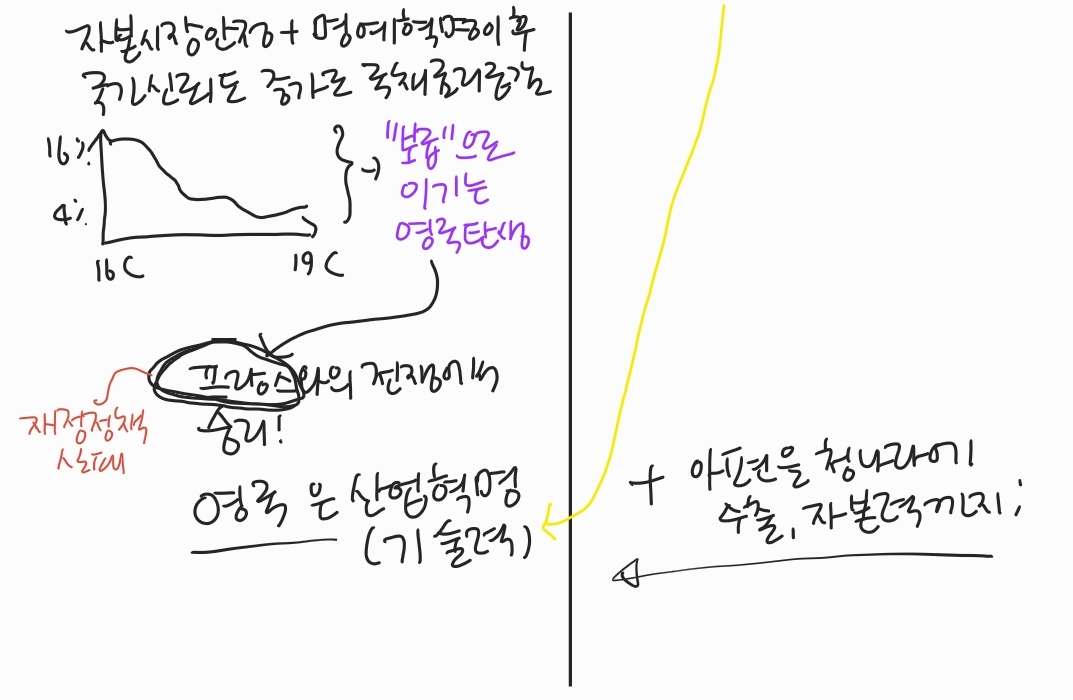 자본시장안정 + 명예혁명이후
국가신뢰도 증가로 국채금리급감
16%
4%
16C
19C
"보급"으로
이기는
영국탄생
프랑스와의 전쟁에서
승리!
재정정책
실태
영국은 산업혁명
(기술력)
+ 아편을 청나라에
수출, 자본력까지;